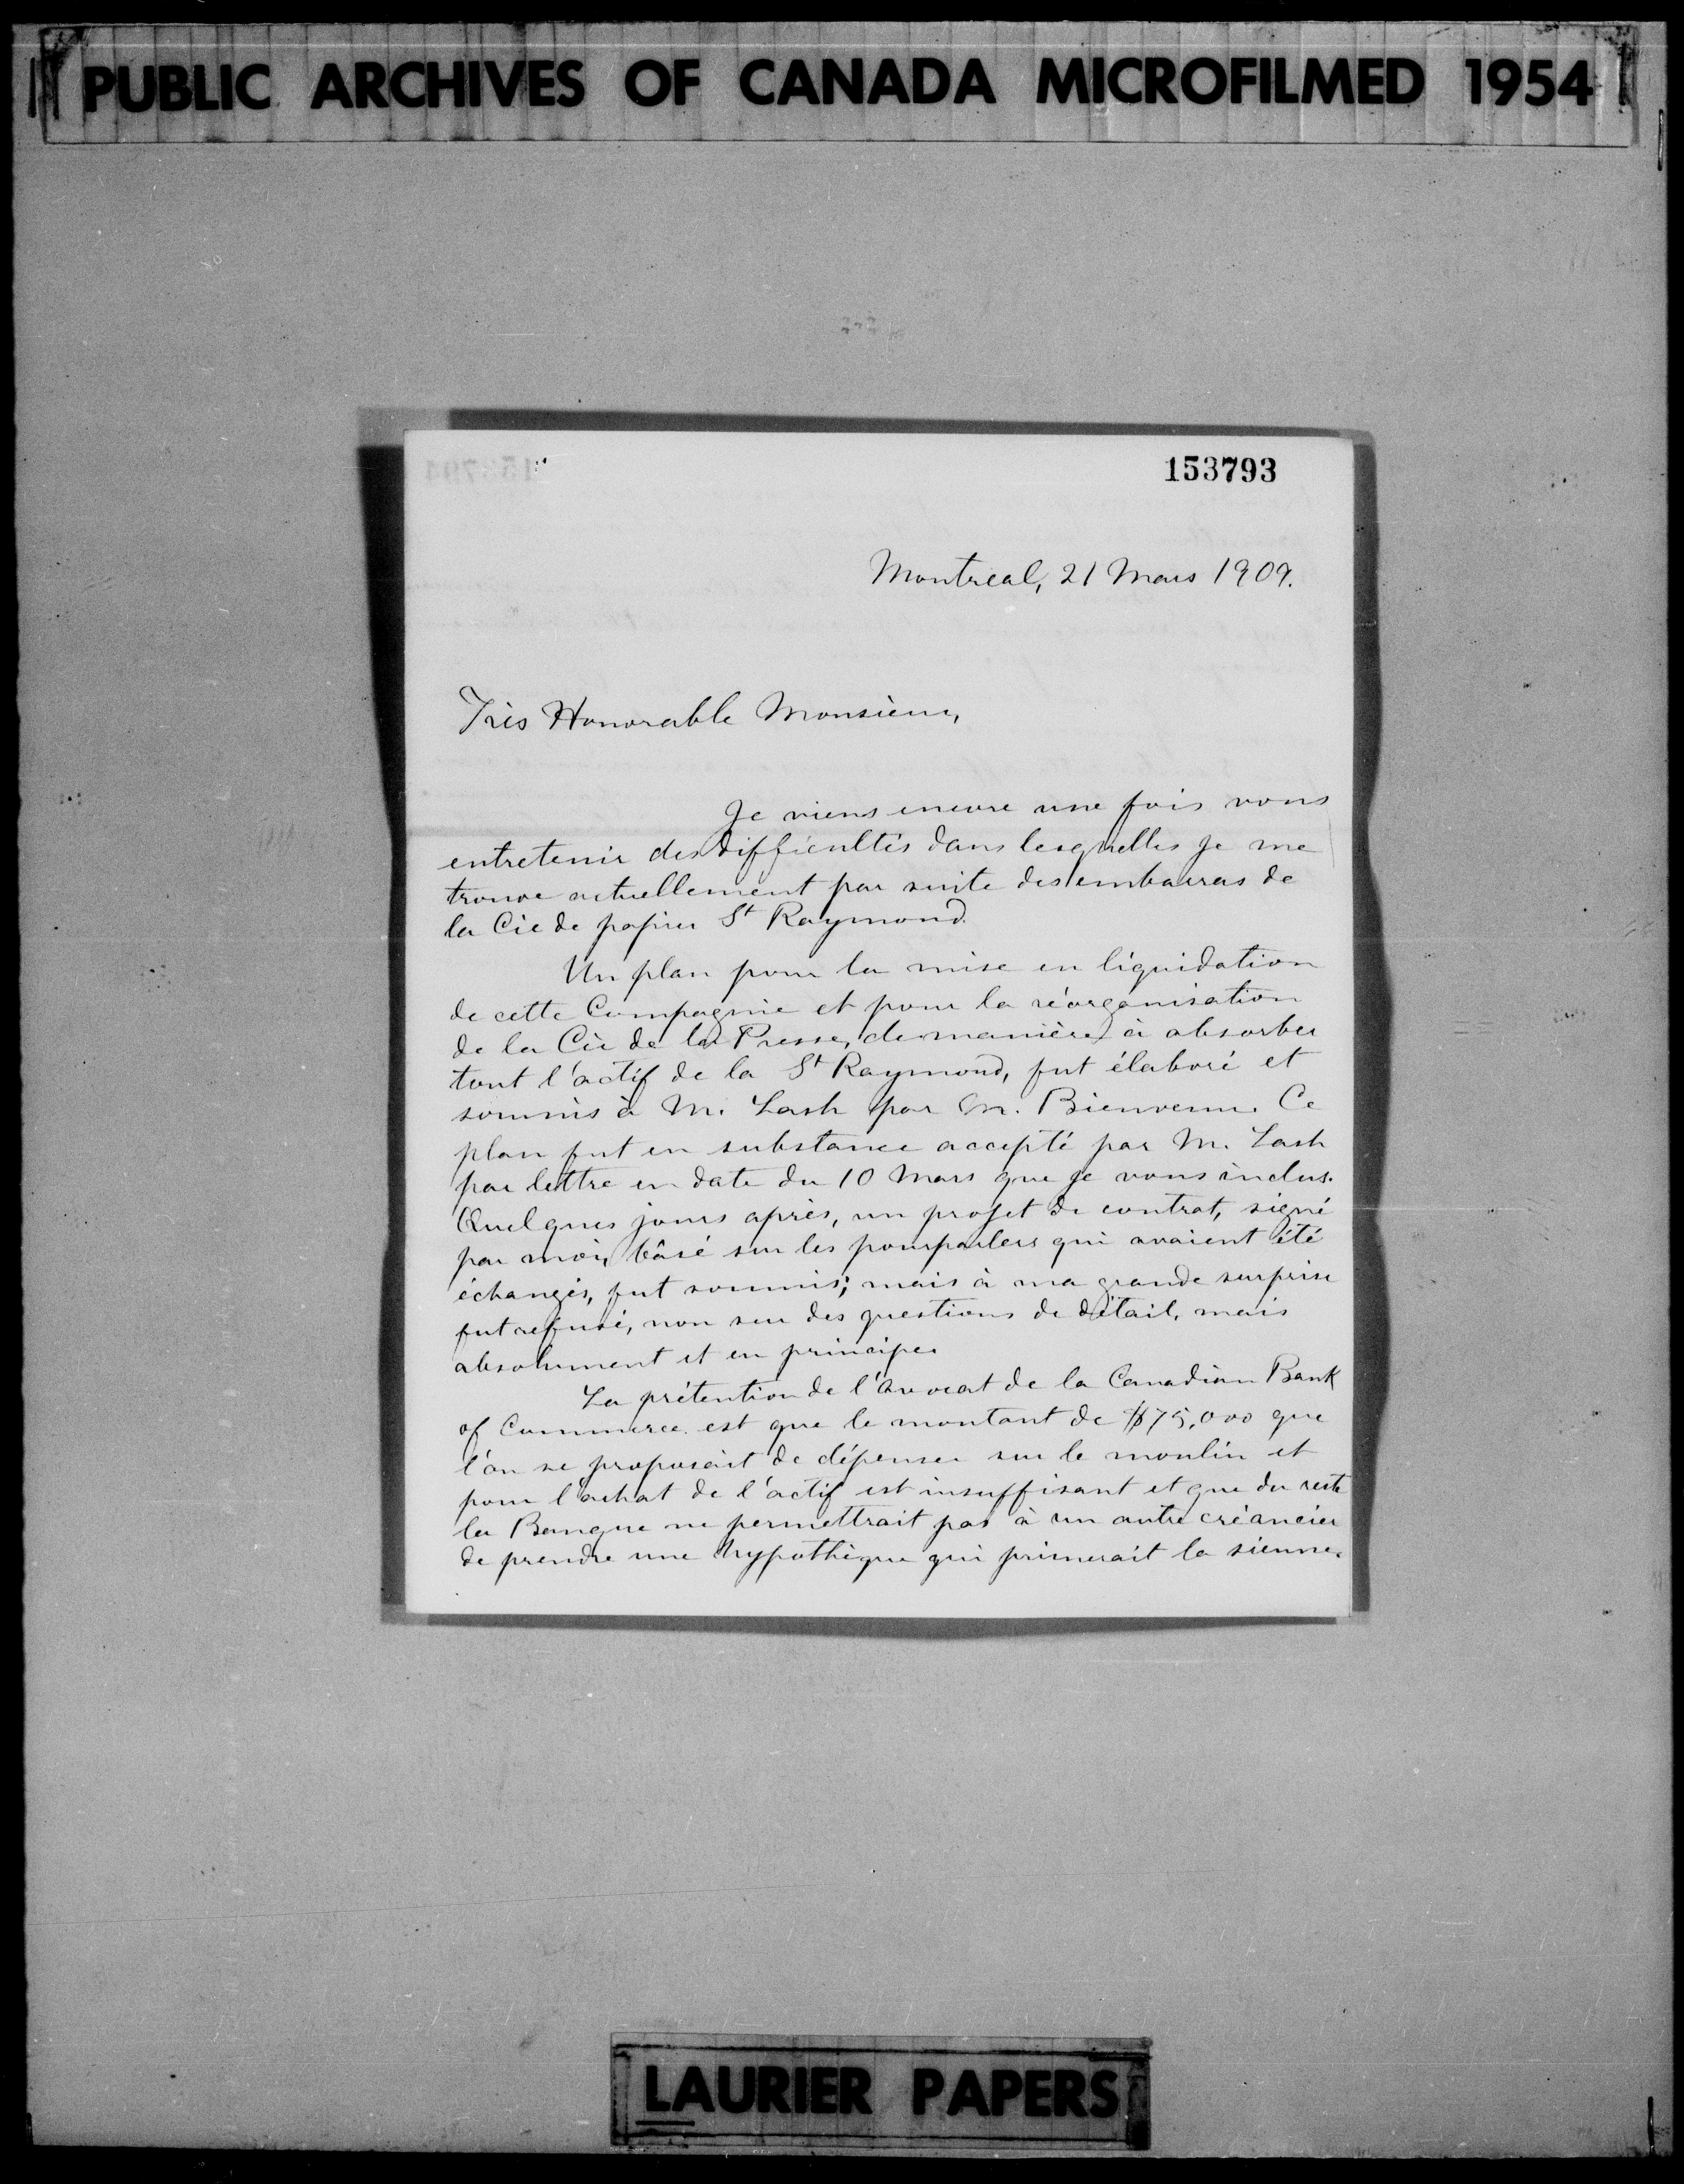 PUBLIC ARCHIVES OF CANADA MICROFILMED 1954
153793
Montreal, 21 Mars 1909.
Très Honorable Monsieur,
Je viens encore une fois vous
entretenir des difficultés dans lesquelles je me
trouve actuellement par suite des embarras de
la Cie de papier St Raymond.
Un plan pour la mise en liquidation
de cette Compagnie et pour la réorganisation
de la Cie de la Presse, de manière à absorber
tout l'actif de la St Raymond, fut élaboré et
soumis à M. Lash par M. Bienvenu. Ce
plan fut en substance accepté par M. Lash
par lettre en date du 10 Mars que je vous inclus.
Quelques jours après, un projet de contrat, signé
par moi, bâsé sur les pourparlers qui avaient été
échangés, fut soumis; mais à ma grande surprise
fut refusé, non sur des questions de détail, mais
absolument et en principe.
La prétention de l'avocat de la Canadian Bank
of Commerce est que le montant de $75,000 que
l'on se proposait de dépenser sur le moulin et
pour l'achat de l'actif est insuffisant et que du reste
la Banque ne permettrait pas à un autre créancier
de prendre une hypothèque qui primerait la sienne.
LAURIER PAPERS